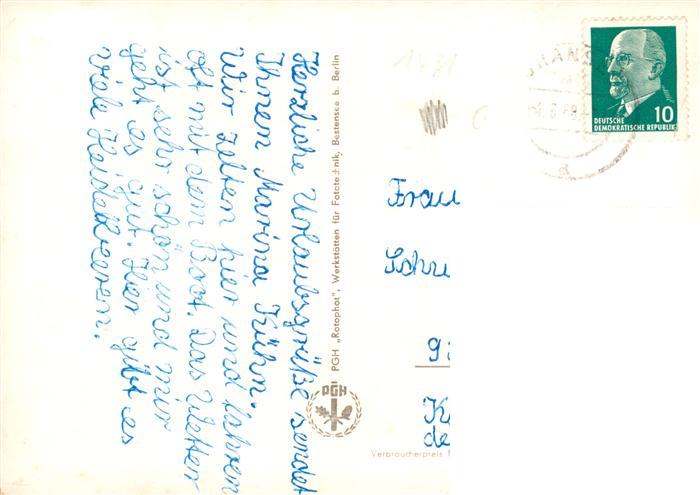 Herzliche Urlaubsgrüße sendet
Ihnen Marina Kühn.
Wir zelten hier und fahren
oft mit dem Boot. Das Wetter
ist sehr schön und mir
geht es gut. Hier gibt es
viele Heidelbeeren.
PGH „Rotophot", Werkstätten für Fototechnik, Bestensee b. Berlin
PGH
DEUTSCHE
DEMOKRATISCHE REPUBLIK
10
Frau
Schu
K
de
Verbraucherpreis